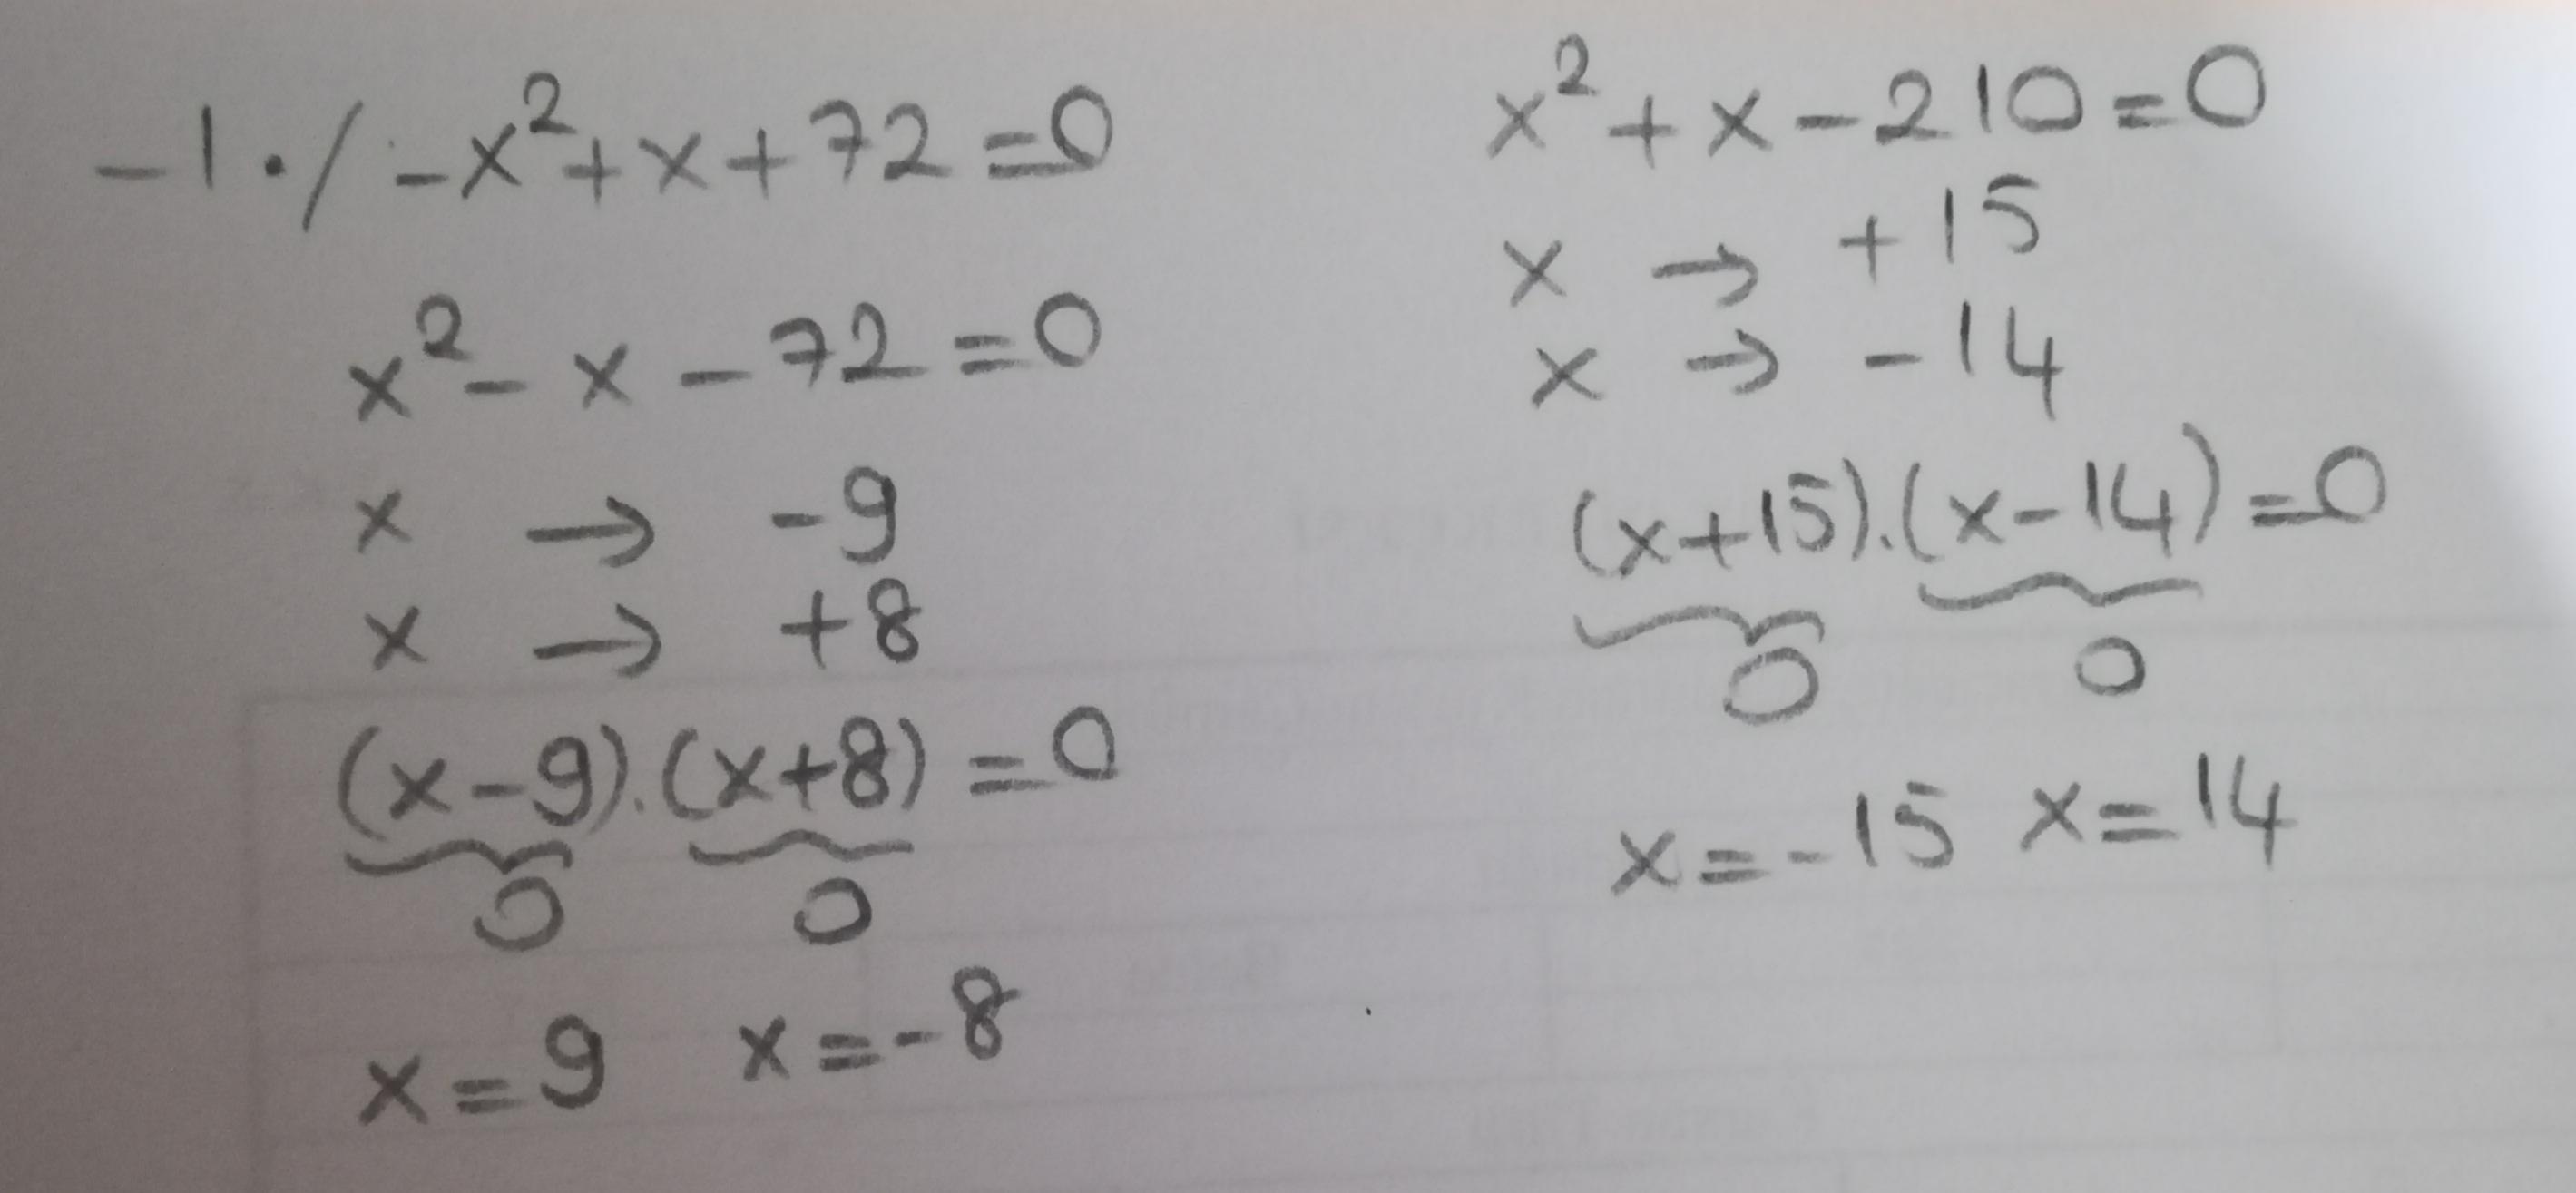 -1 . / -x²+x+72=0
x²-x-72=0
x → -9
x → +8
(x-9).(x+8)=0
0 0
x=9 x=-8
x²+x-210=0
x → +15
x → -14
(x+15).(x-14)=0
0 0
x=-15 x=14